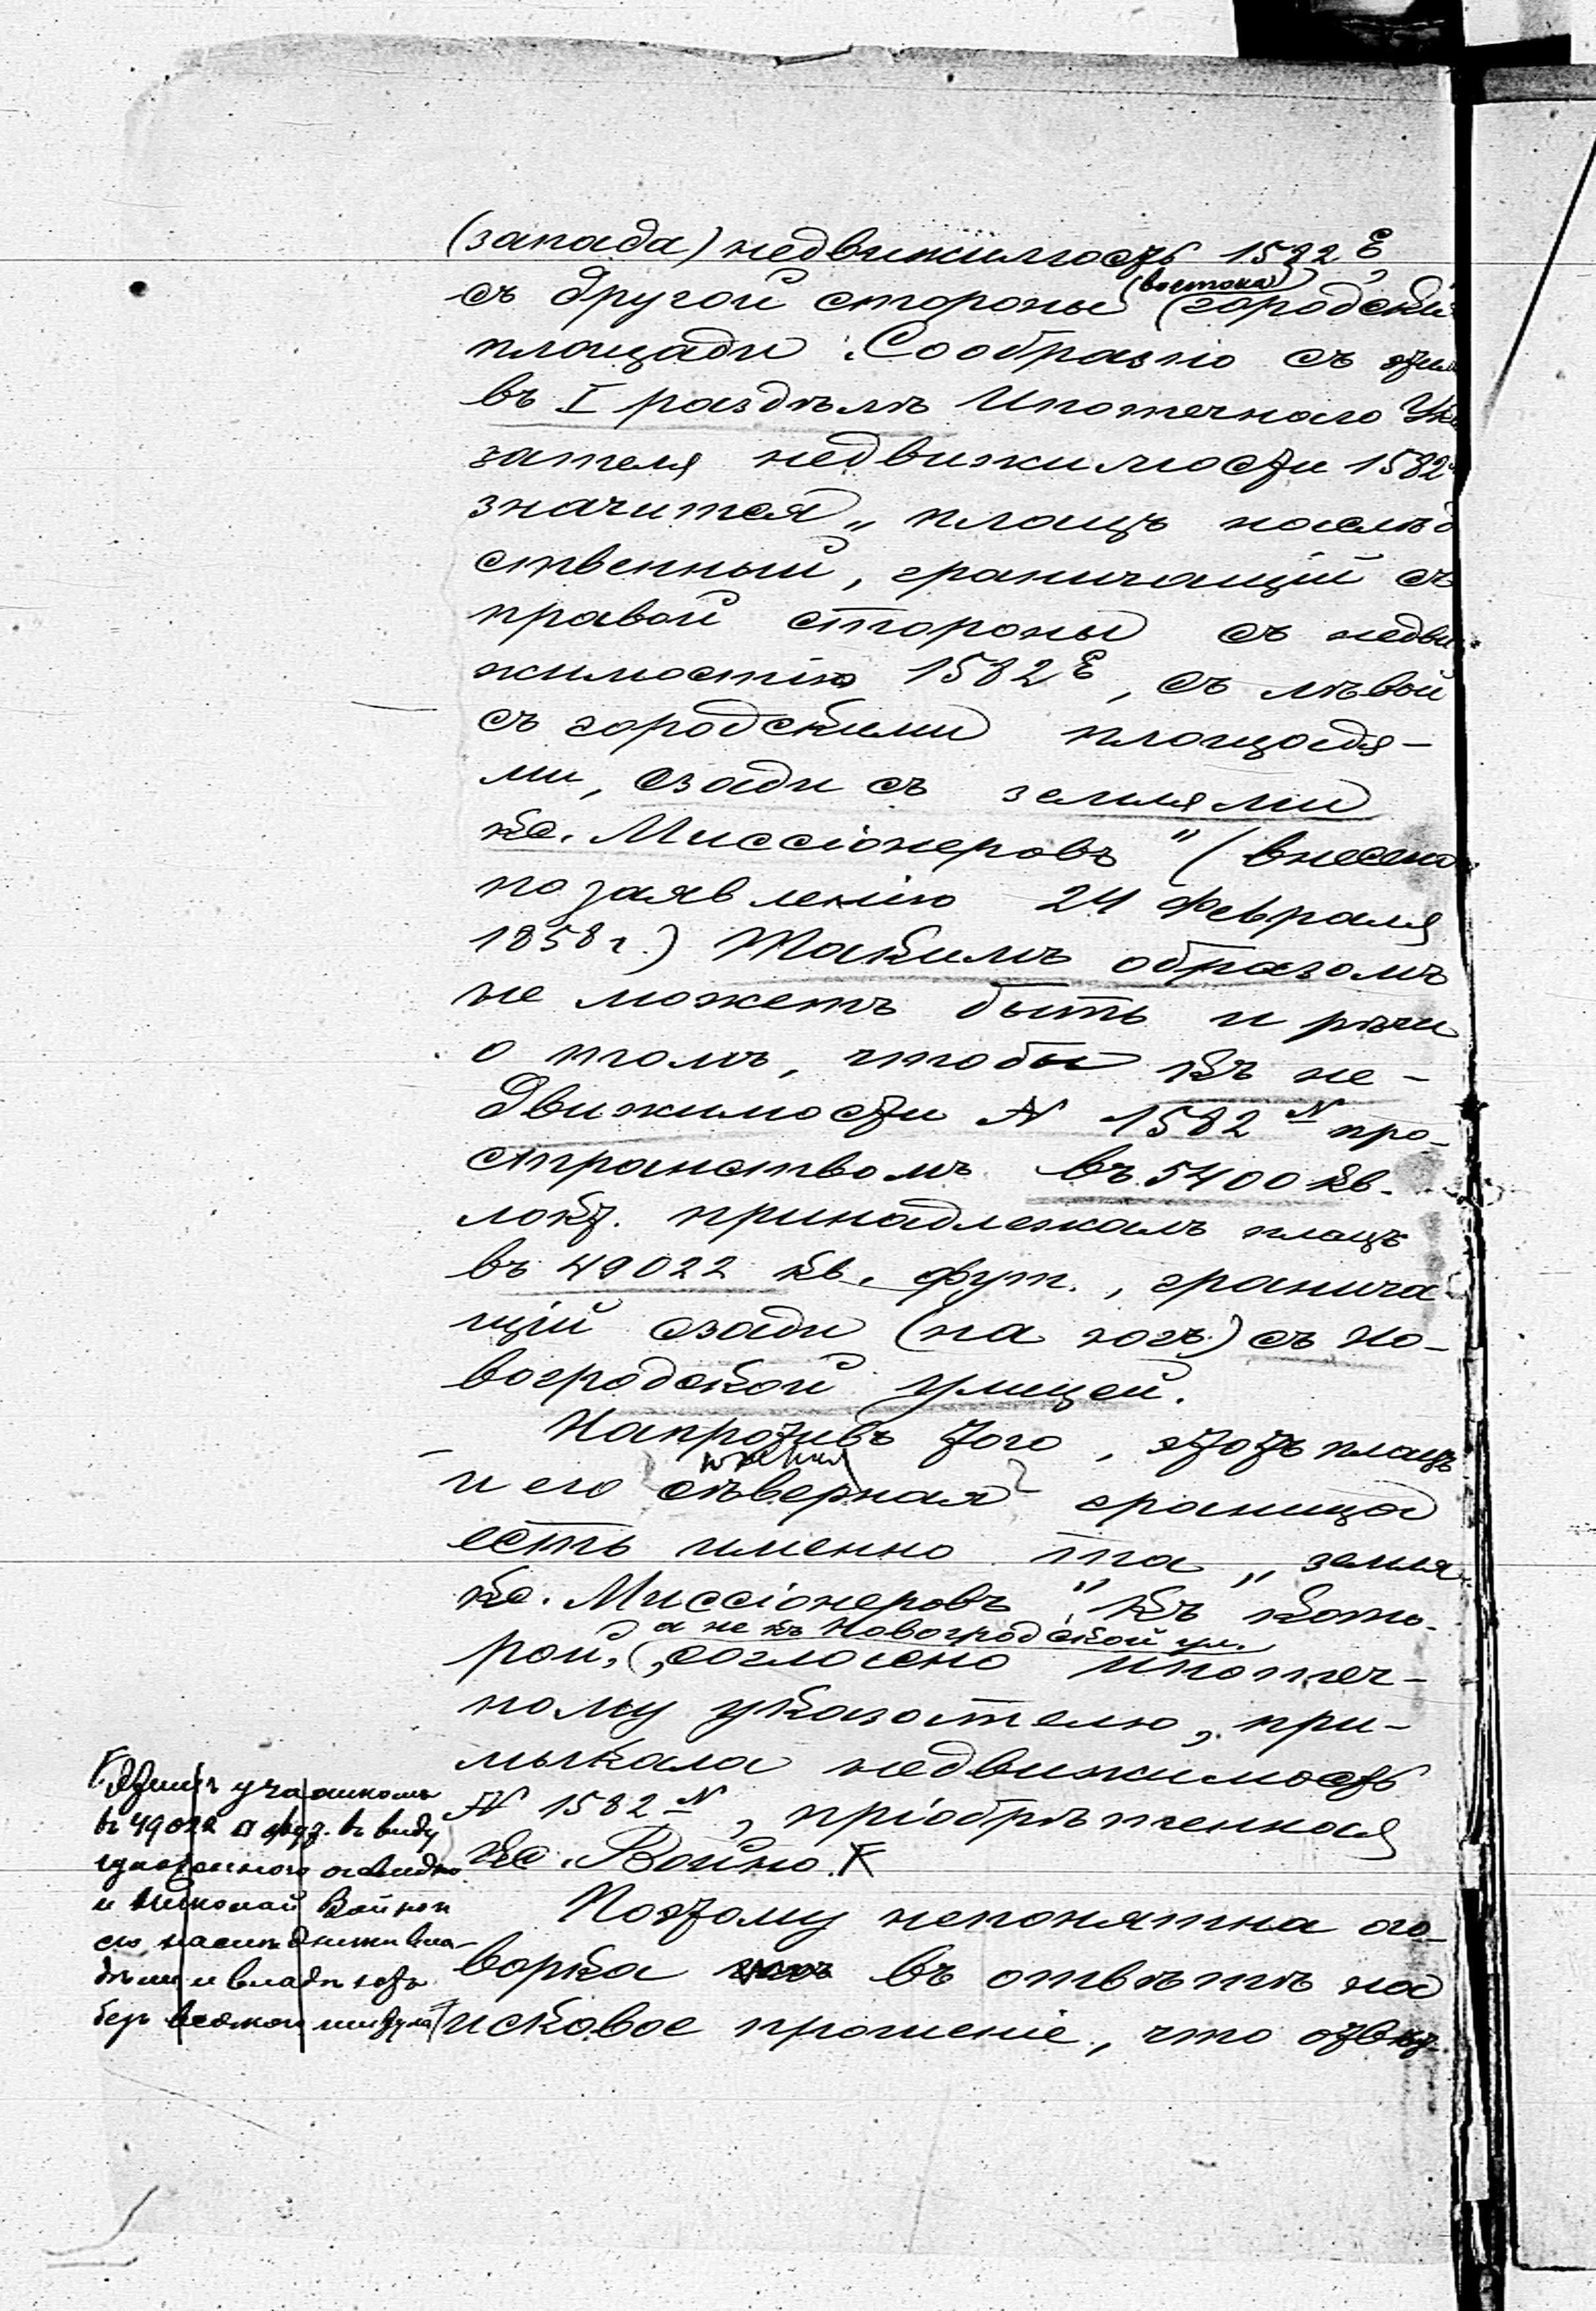 (запада) недвижимость 1582 E,
съ другой стороны (востока) (городскія
площади. Сообразно съ этим
въ I раздѣлѣ Ипотечнаго Ука
зателя недвижимости 1582
значится „плацъ наслѣд
ственный, граничащій съ
правой стороны съ недви
жимостію 1582 E, съ лѣвой
съ городскими площадя-
ми, сзади съ землями
кс. Миссіонеровъ" (внесено
по заявленію 24 Февраля
1858 г.) Такимъ образомъ
не можетъ быть и рѣчи
о томъ, чтобы къ не-
движимости N 1582 N про-
странствомъ въ 5400 кв.
локт. принадлежалъ плацъ
въ 49022 кв. фут., гранича
щій сзади (на югъ) съ Но-
вогродской улицей.
Напротивъ того, этотъ плацъ
южная
и его сѣверная граница
есть именно та „земля
кс. Миссіонеровъ", къ кото-
а не къ Новогродской ул.
рой, согласно ипотеч-
ному указателю, при-
мыкала недвижимость
N 1582 N, пріобрѣтенная
кс. Войно.
Поэтому непонятна ого-
ворка въ отвѣтѣ на
исковое прошеніе, что отвѣт-
Этимъ участкомъ
въ 49022 □ фут. въ виду
и Николай Войно и
его наслѣдники вла-
дѣли и владѣютъ
безъ всякаго титула